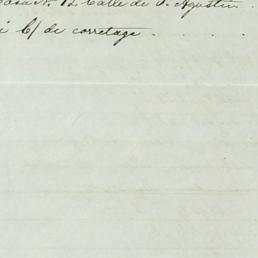 Casa N. 12 Calle de S. Agustin .
i C/ de corretage . . . . .